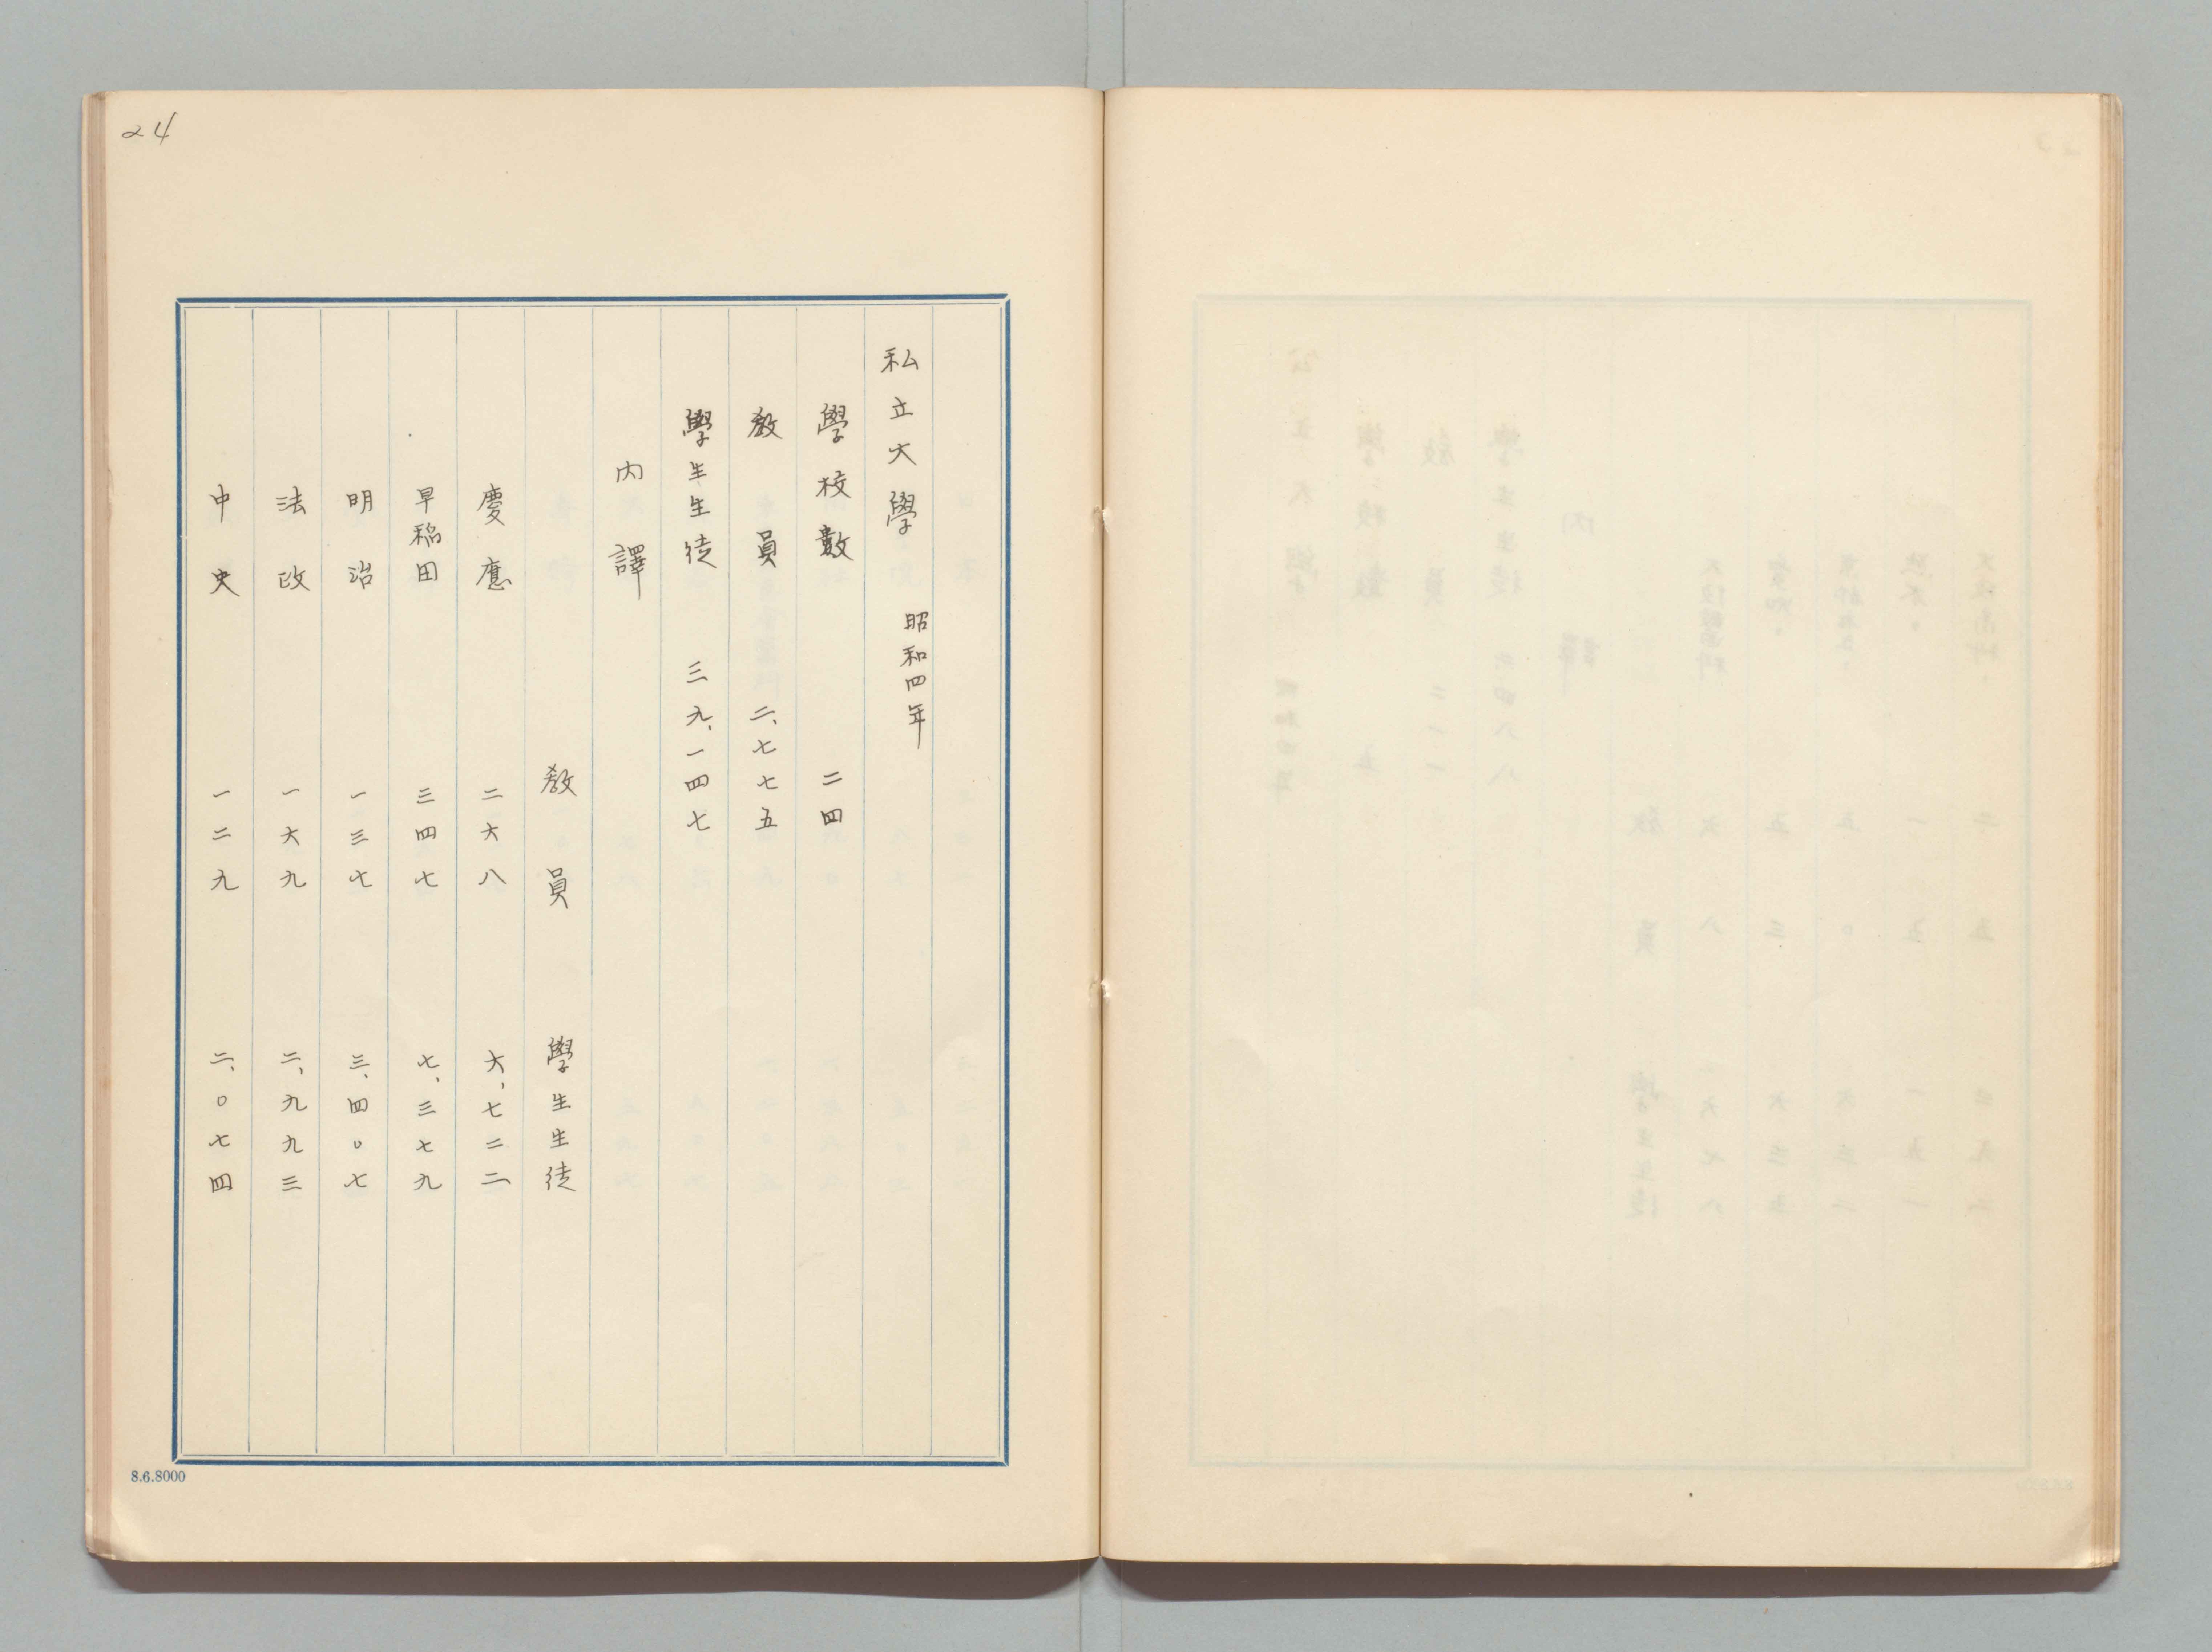 24
私立大學 昭和四年
學校數 二四
教員 二、七七五
學生生徒 三九、一四七
內譯
教員 學生生徒
慶應 二六八 六、七二二
早稲田 三四七 七、三七九
明治 一三七 三、四〇七
法政 一六九 二、九九三
中央 一二九 二、〇七四
8.6.8000